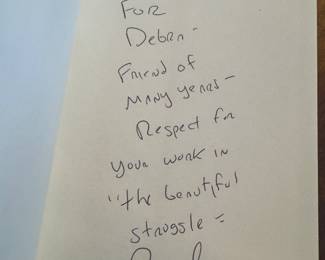 For
Debra –
Friend of
Many years –
Respect for
your work in
"the beautiful
struggle =